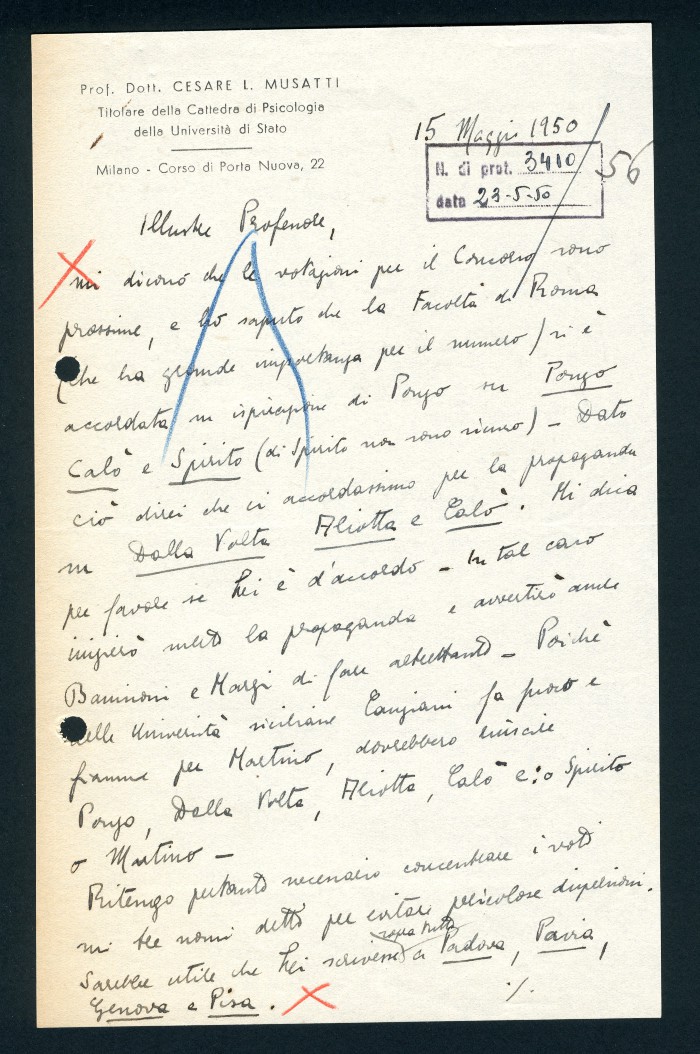 Prof. Dott. CESARE L. MUSATTI
Titolare della Cattedra di Psicologia
della Università di Stato
Milano - Corso di Porta Nuova, 22
15 Maggio 1950
N. di prot. 3410
data 23-5-50
56
Illustre Professore,
mi dicono che le votazioni per il Concorso sono
prossime, e ho saputo che la Facoltà di Roma
(che ha grande importanza per il numero) si è
accordata su ispirazione di Ponzo su Ponzo
Calò e Spirito (di Spirito non sono sicuro) - Dato
ciò direi che ci accordassimo per la propaganda
su Dalla Volta Aliotta e Calò. Mi dica
per favore se Lei è d'accordo - In tal caso
inizierò subito la propaganda e avvertirò anche
Banissoni e Marzi di fare altrettanto - Poiché
nelle Università siciliane Cangiani fa fuoco e
fiamme per Martino, dovrebbero riuscire
Ponzo, Dalla Volta, Aliotta, Calò e: o Spirito
o Martino -
Ritengo pertanto necessario concentrare i voti
sui tre nomi detti per evitare pericolose dispersioni.
Sarebbe utile che Lei scrivesse sopra tutto a Padova, Pavia,
Genova e Pisa.
./.